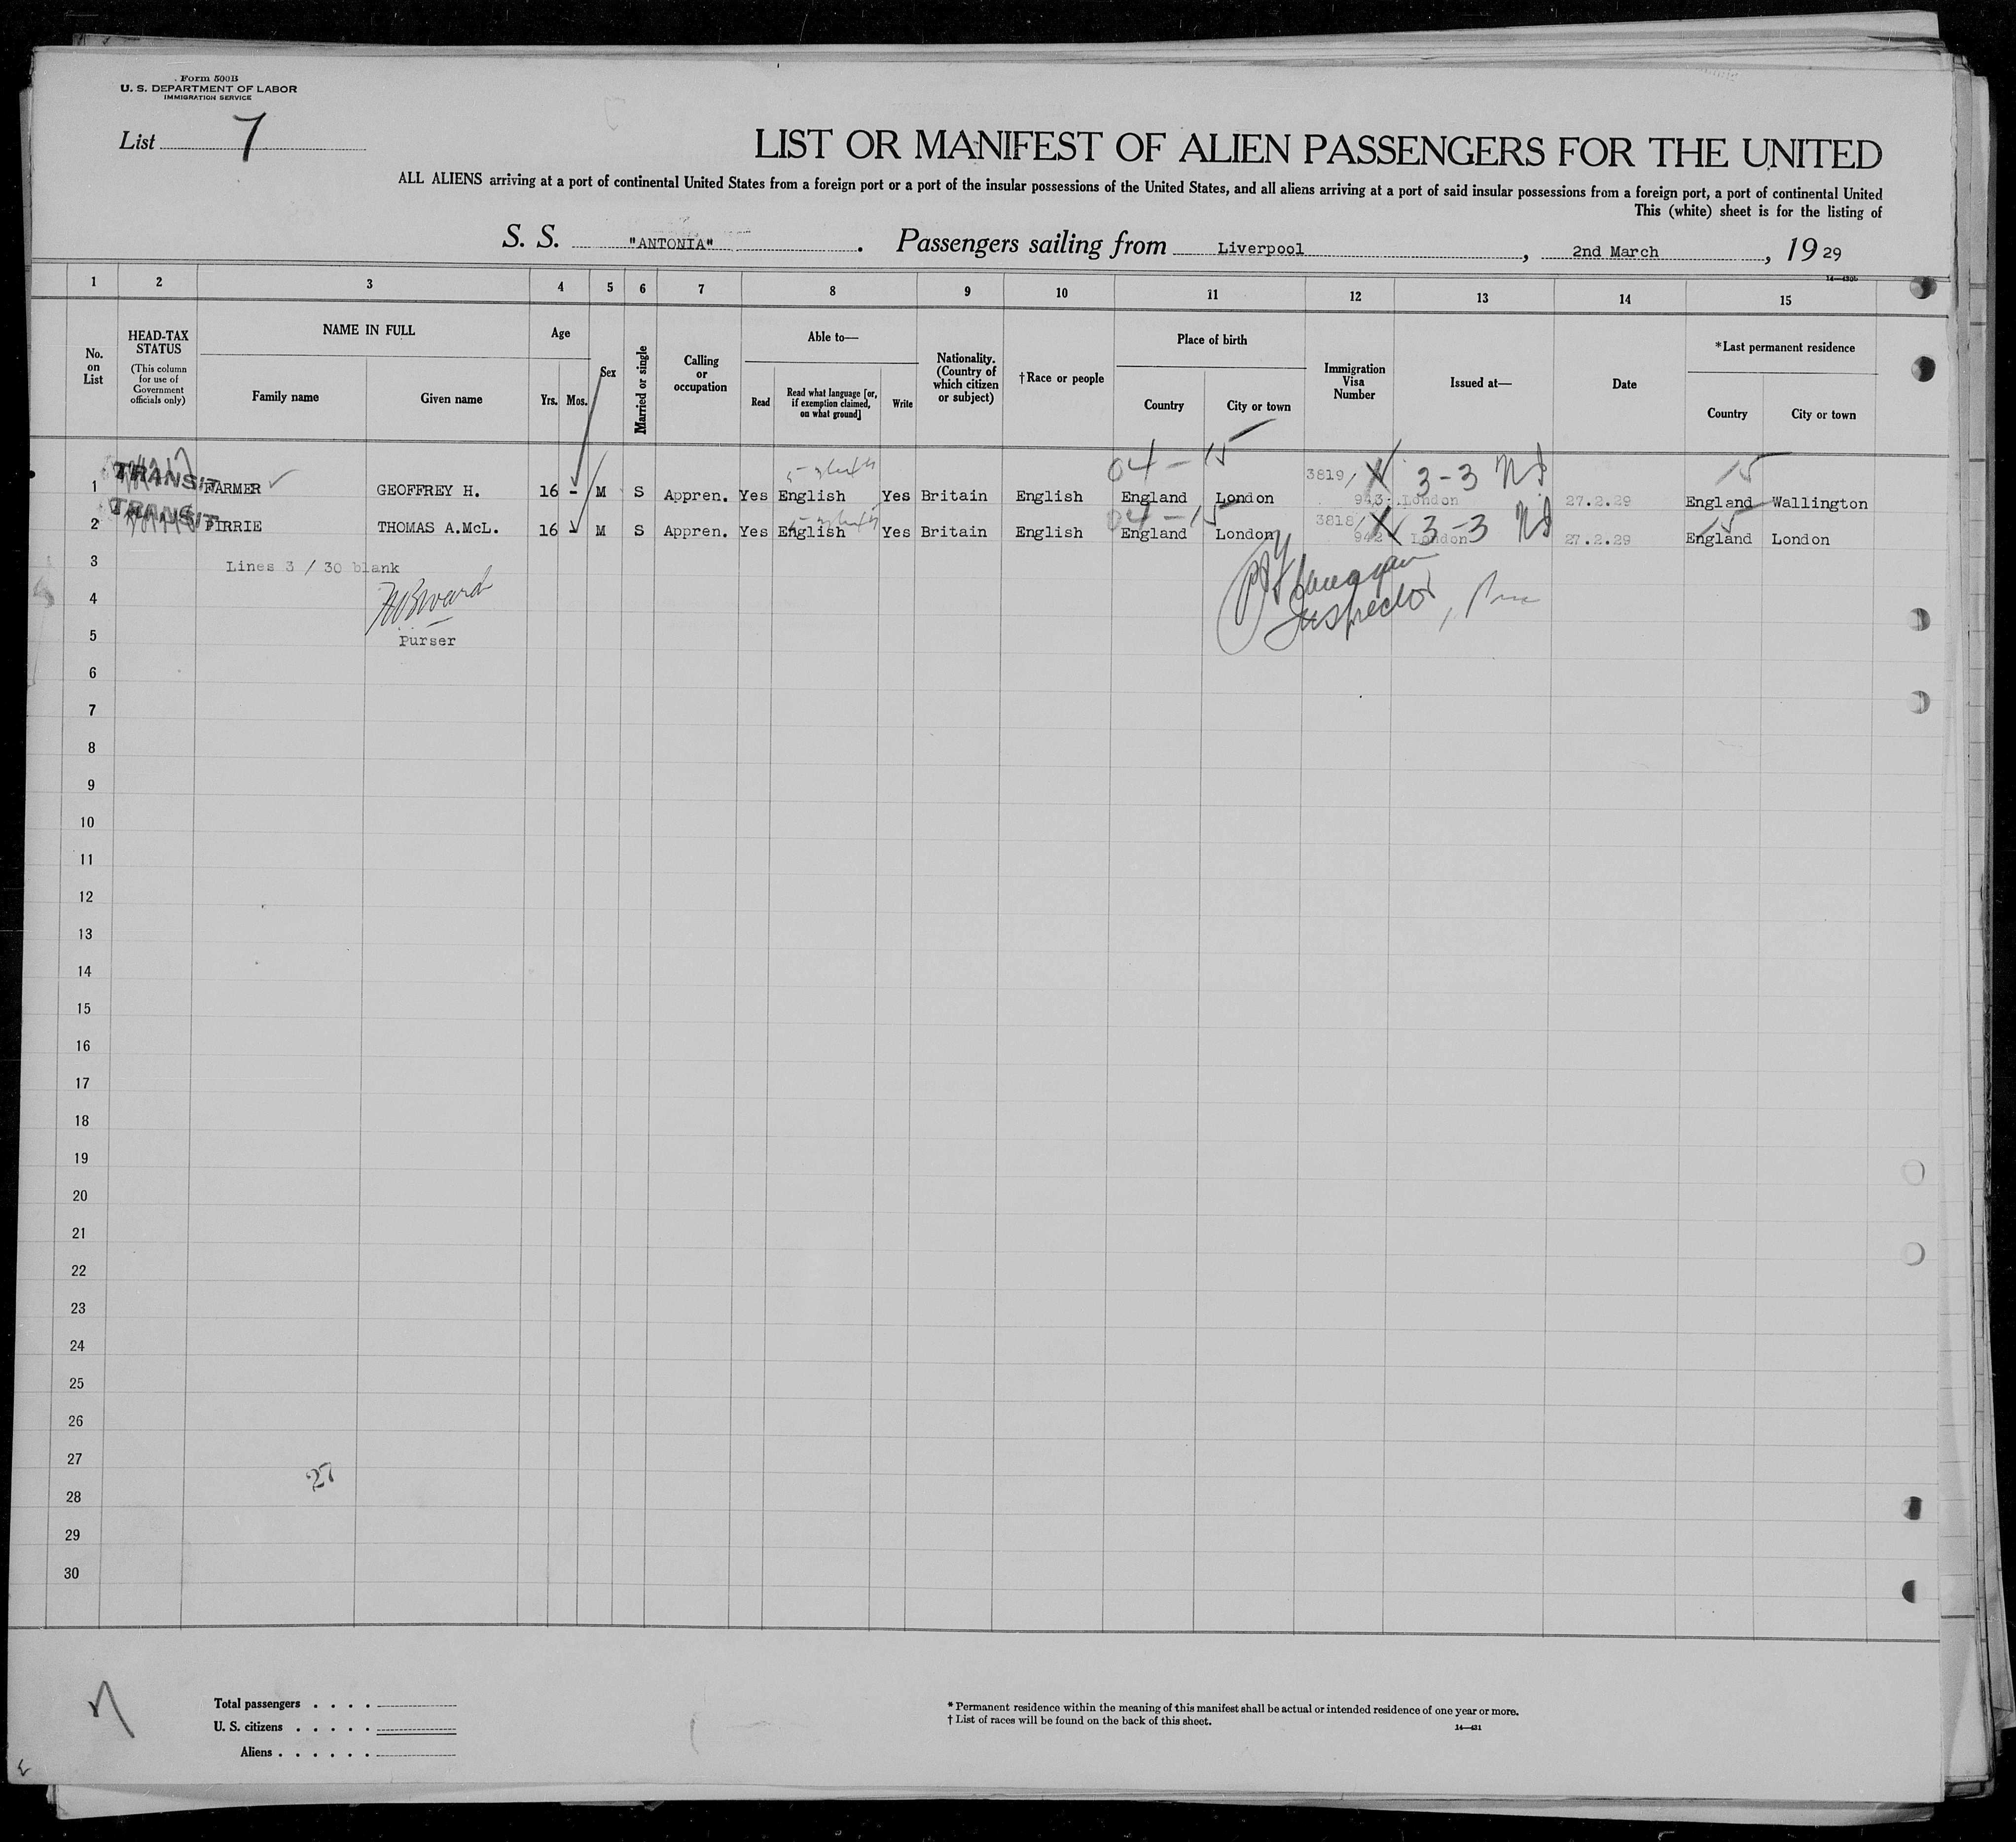 Form 500B
U. S. DEPARTMENT OF LABOR
IMMIGRATION SERVICE
List 7
LIST OR MANIFEST OF ALIEN PASSENGERS FOR THE UNITED
ALL ALIENS arriving at a port of continental United States from a foreign port or a port of the insular possessions of the United States, and all aliens arriving at a port of said insular possessions from a foreign port, a port of continental United
This (white) sheet is for the listing of
S. S. "ANTONIA". Passengers sailing from Liverpool, 2nd March, 1929
1 2 3 4 5 6 7 8 9 10 11 12 13 14 15
No. on List
HEAD-TAX STATUS (This column for use of Government officials only)
NAME IN FULL
Family name Given name
Age
Yrs. Mos.
Sex
Married or single
Calling or occupation
Able to—
Read
Read what language [or, if exemption claimed, on what ground]
Write
Nationality. (Country of which citizen or subject)
†Race or people
Place of birth
Country City or town
Immigration Visa Number
Issued at—
Date
*Last permanent residence
Country City or town
04 - 15 3819/ 3-3 15
1 TRANSIT FARMER GEOFFREY H. 16 - M S Appren. Yes English Yes Britain English England London 943 London 27.2.29 England Wallington
04 - 15 3818/ 3-3 15
2 TRANSIT PIRRIE THOMAS A.McL. 16 M S Appren. Yes English Yes Britain English England London 942 London 27.2.29 England London
3 Lines 3 / 30 blank
4 Inspector
5 Purser
6
7
8
9
10
11
12
13
14
15
16
17
18
19
20
21
22
23
24
25
26
27
27
28
29
30
Total passengers . . . .
U. S. citizens . . . . .
Aliens . . . . . .
* Permanent residence within the meaning of this manifest shall be actual or intended residence of one year or more.
† List of races will be found on the back of this sheet.
14—431